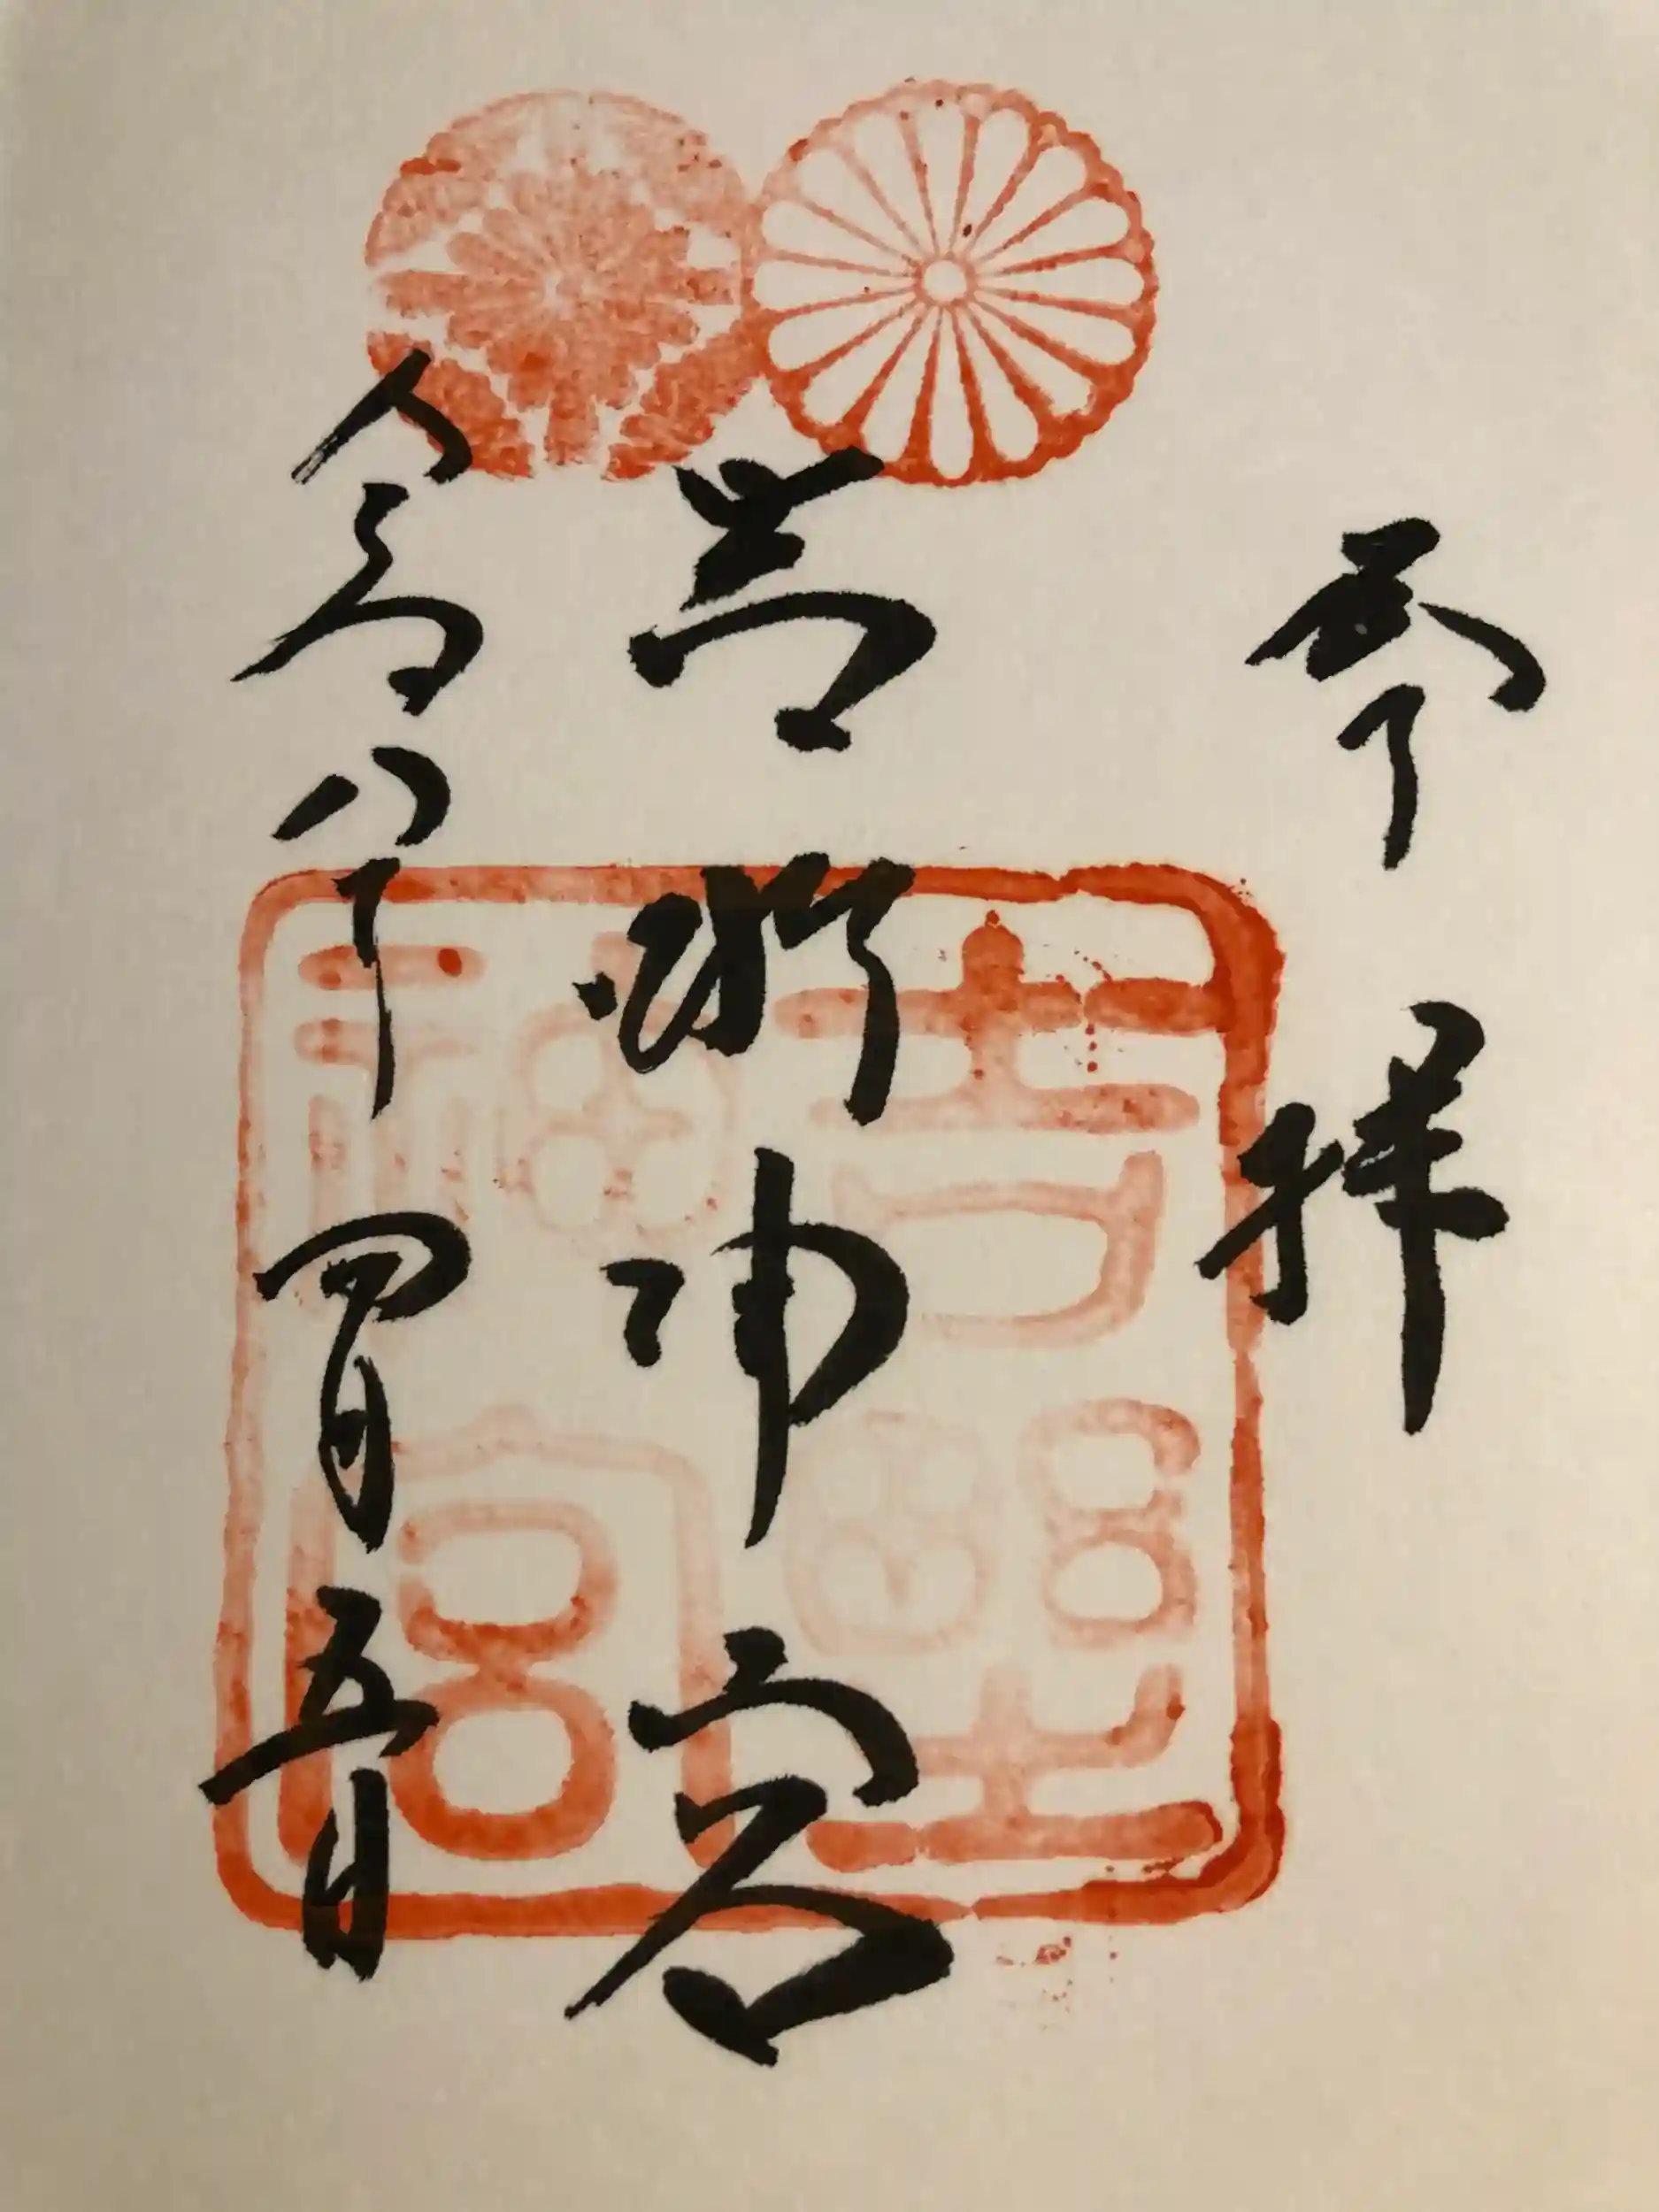 奉拝
吉野神宮
令和八年四月五日
吉野神宮